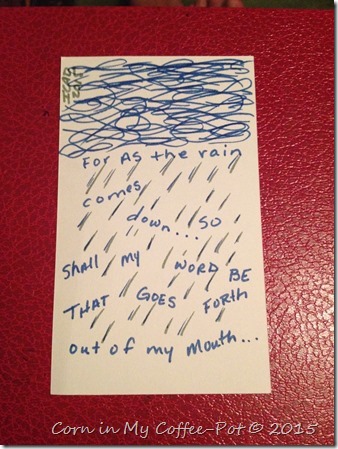 ICAD
2015
For As the rain
comes
down... SO
Shall my WORD BE
THAT GOES Forth
out of my Mouth...
Corn in My Coffee-Pot © 2015